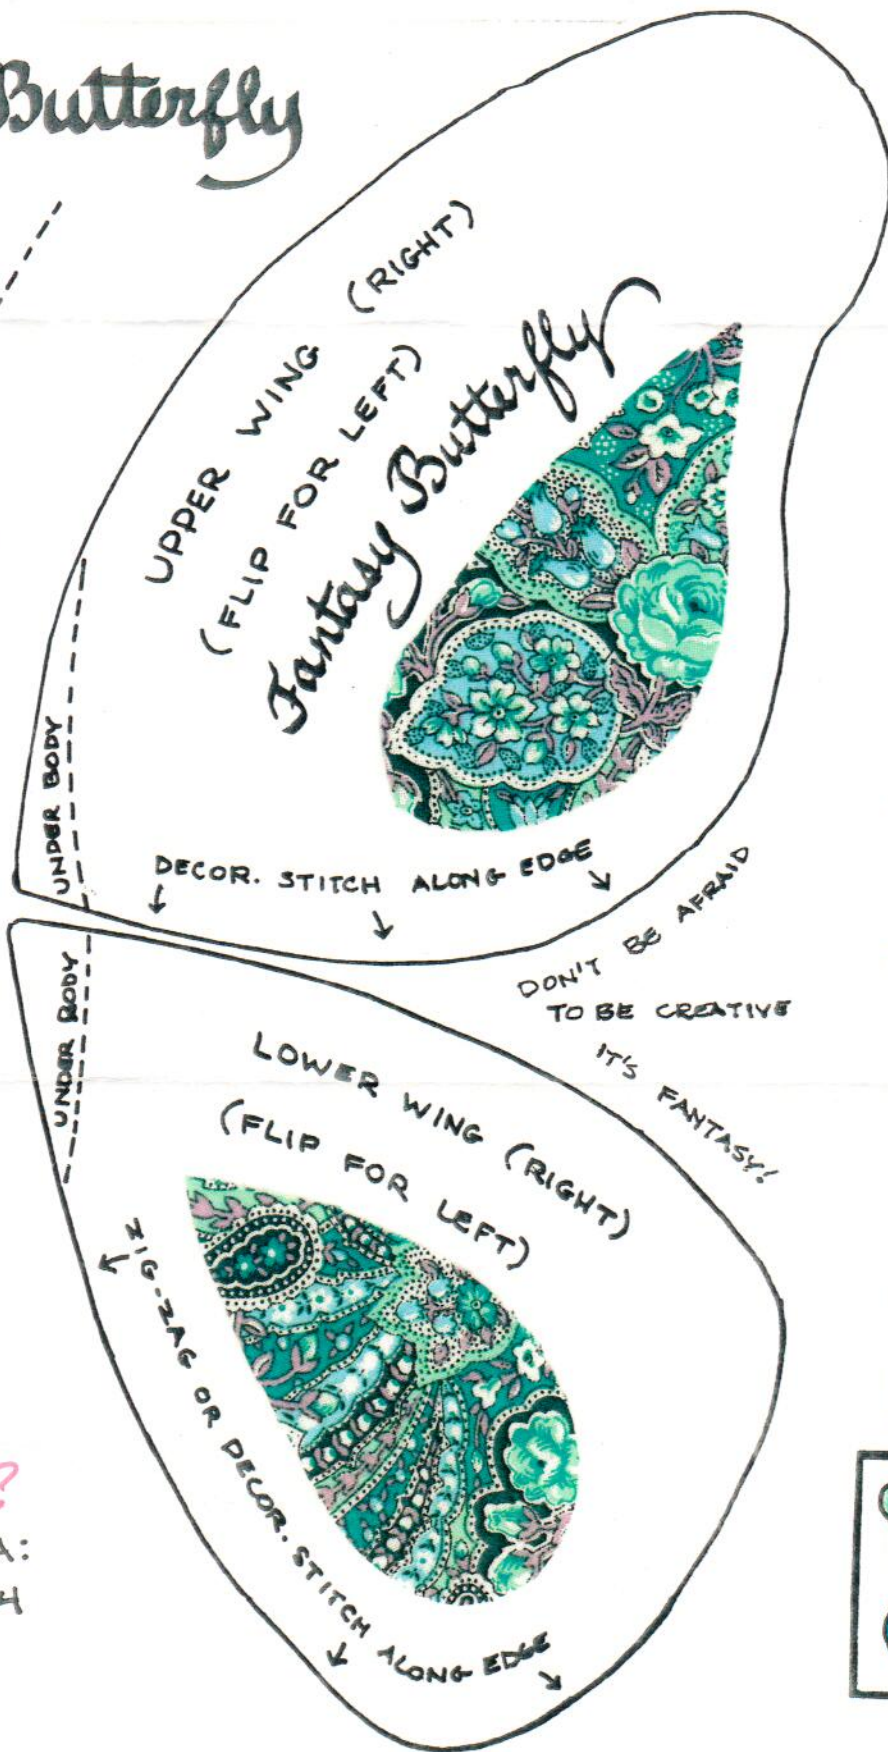 Butterfly
UPPER WING (RIGHT)
(FLIP FOR LEFT)
Fantasy Butterfly
UNDER BODY
DECOR. STITCH ALONG EDGE
DON'T BE AFRAID
TO BE CREATIVE
IT'S FANTASY!
UNDER BODY
LOWER WING (RIGHT)
(FLIP FOR LEFT)
ZIG-ZAG OR DECOR. STITCH ALONG EDGE
?